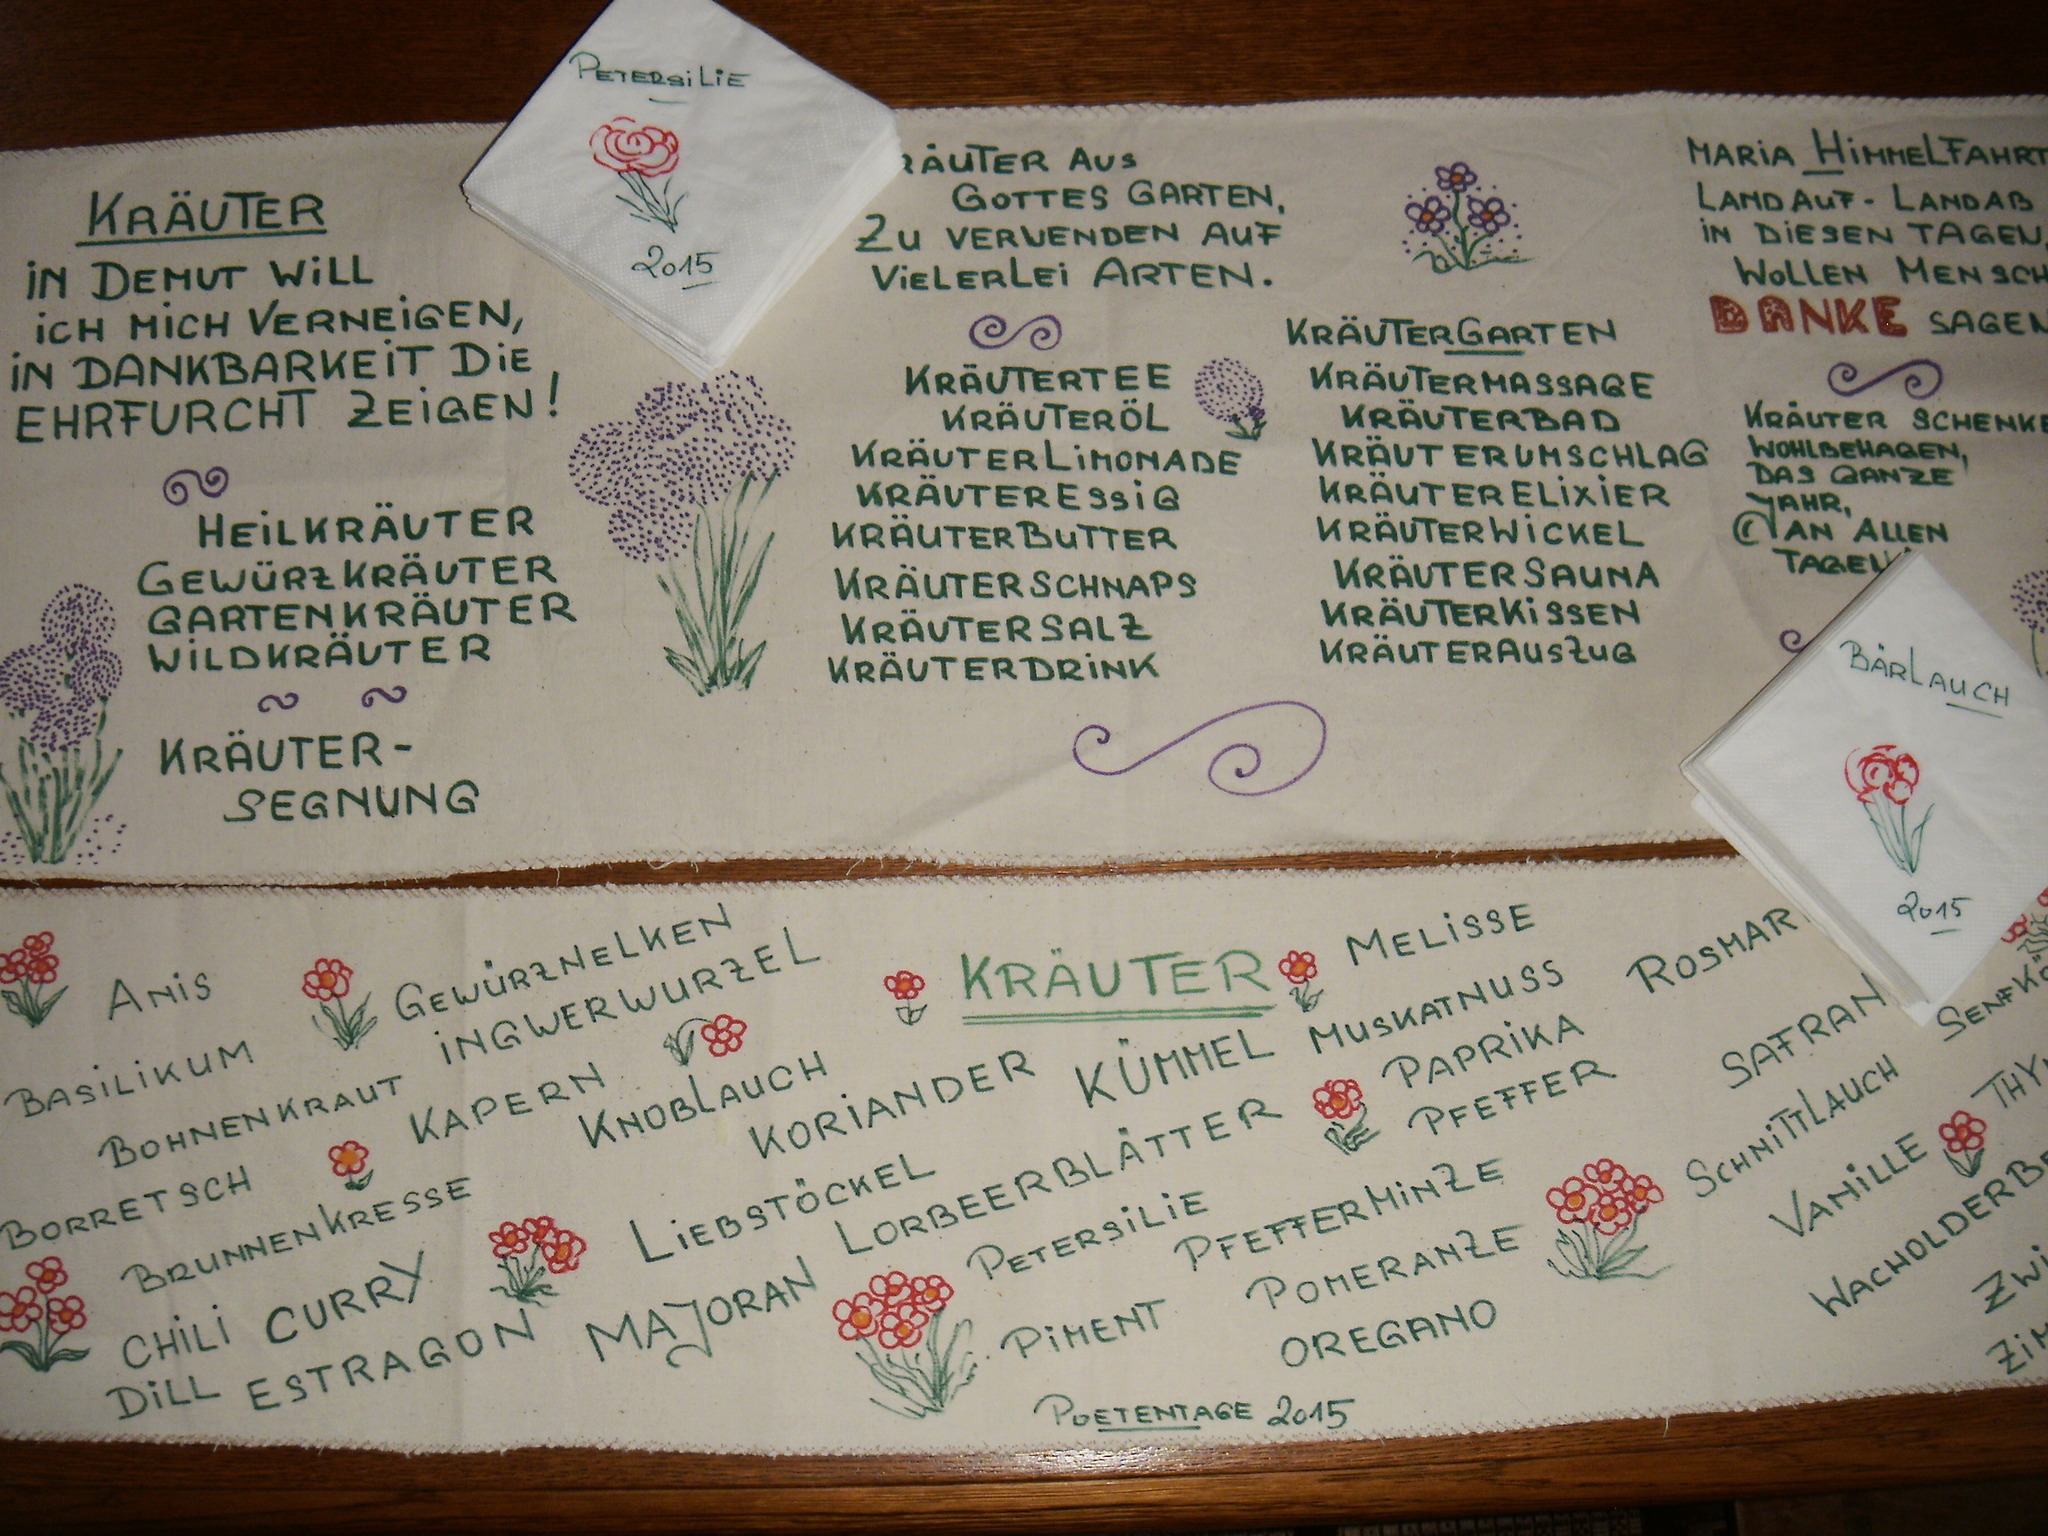 PETERSILIE
2015
KRÄUTER
IN DEMUT WILL
ICH MICH VERNEIGEN,
IN DANKBARKEIT DIE
EHRFURCHT ZEIGEN!
HEILKRÄUTER
GEWÜRZKRÄUTER
GARTENKRÄUTER
WILDKRÄUTER
KRÄUTER-
SEGNUNG
RÄUTER AUS
GOTTES GARTEN,
ZU VERWENDEN AUF
VIELERLEI ARTEN.
KRÄUTERTEE
KRÄUTERÖL
KRÄUTERLIMONADE
KRÄUTERESSIG
KRÄUTERBUTTER
KRÄUTERSCHNAPS
KRÄUTERSALZ
KRÄUTERDRINK
KRÄUTERGARTEN
KRÄUTERMASSAGE
KRÄUTERBAD
KRÄUTERUMSCHLAG
KRÄUTERELIXIER
KRÄUTERWICKEL
KRÄUTERSAUNA
KRÄUTERKISSEN
KRÄUTERAUSZUG
MARIA HIMMELFAHRT
LANDAUF-LANDAB
IN DIESEN TAGEN,
WOLLEN MENSCH
DANKE SAGEN
KRÄUTER SCHENKE
WOHLBEHAGEN,
DAS GANZE
JAHR,
AN ALLEN
TAGEN
BÄRLAUCH
2015
ANIS
BASILIKUM
BOHNENKRAUT
BORRETSCH
BRUNNENKRESSE
CHILI CURRY
DILL ESTRAGON
GEWÜRZNELKEN
INGWERWURZEL
KAPERN
KNOBLAUCH
KRÄUTER
KORIANDER
KÜMMEL
LIEBSTÖCKEL
LORBEERBLÄTTER
MAJORAN
MELISSE
MUSKATNUSS
PAPRIKA
PFEFFER
PETERSILIE
PFEFFERMINZE
PIMENT
POMERANZE
OREGANO
ROSMAR
SAFRAN
SENFKÖ
SCHNITTLAUCH
THY
VANILLE
WACHOLDERBE
ZWI
ZIM
POETENTAGE 2015